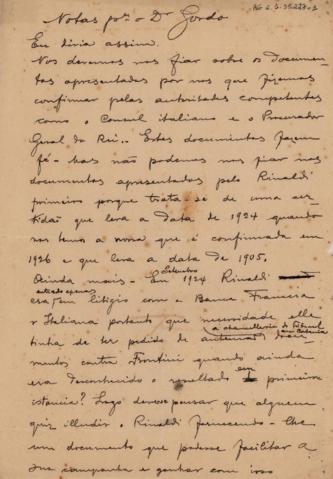 Notas pª o Dr Gordo
Eu diria assim.
Nos devemos nos fiar sobre os documen-
tos apresentados por nos que fizemos
confirmar pelas autoridades competentes
como o Consul italiano e o Procurador
Geral do Rei.. Estes documentos fazem
fé. Mas não podemos nos fiar nos
documentos apresentados pelo Rinaldi
primeiro porque trata-se de uma cer-
tidão que leva a data de 1924 quando
nos temos a nossa que é confirmada em
1926 e que leva a data de 1905.
Ainda mais - Em Setembro 1924 Rinaldi
estava apenas em litigio com o Banco Francese
e Italiana portanto que necessidade elle
tinha de ter pedido a chancellaria do Tribunal
mentos contra Frontini quando ainda
era desconhecido o resultado em primeira
istancia? Logo deve-se pensar que alguem
quiz illudir o Rinaldi fornecendo-lhe
um documento que podesse facilitar a
sua campanha e ganhar com isso